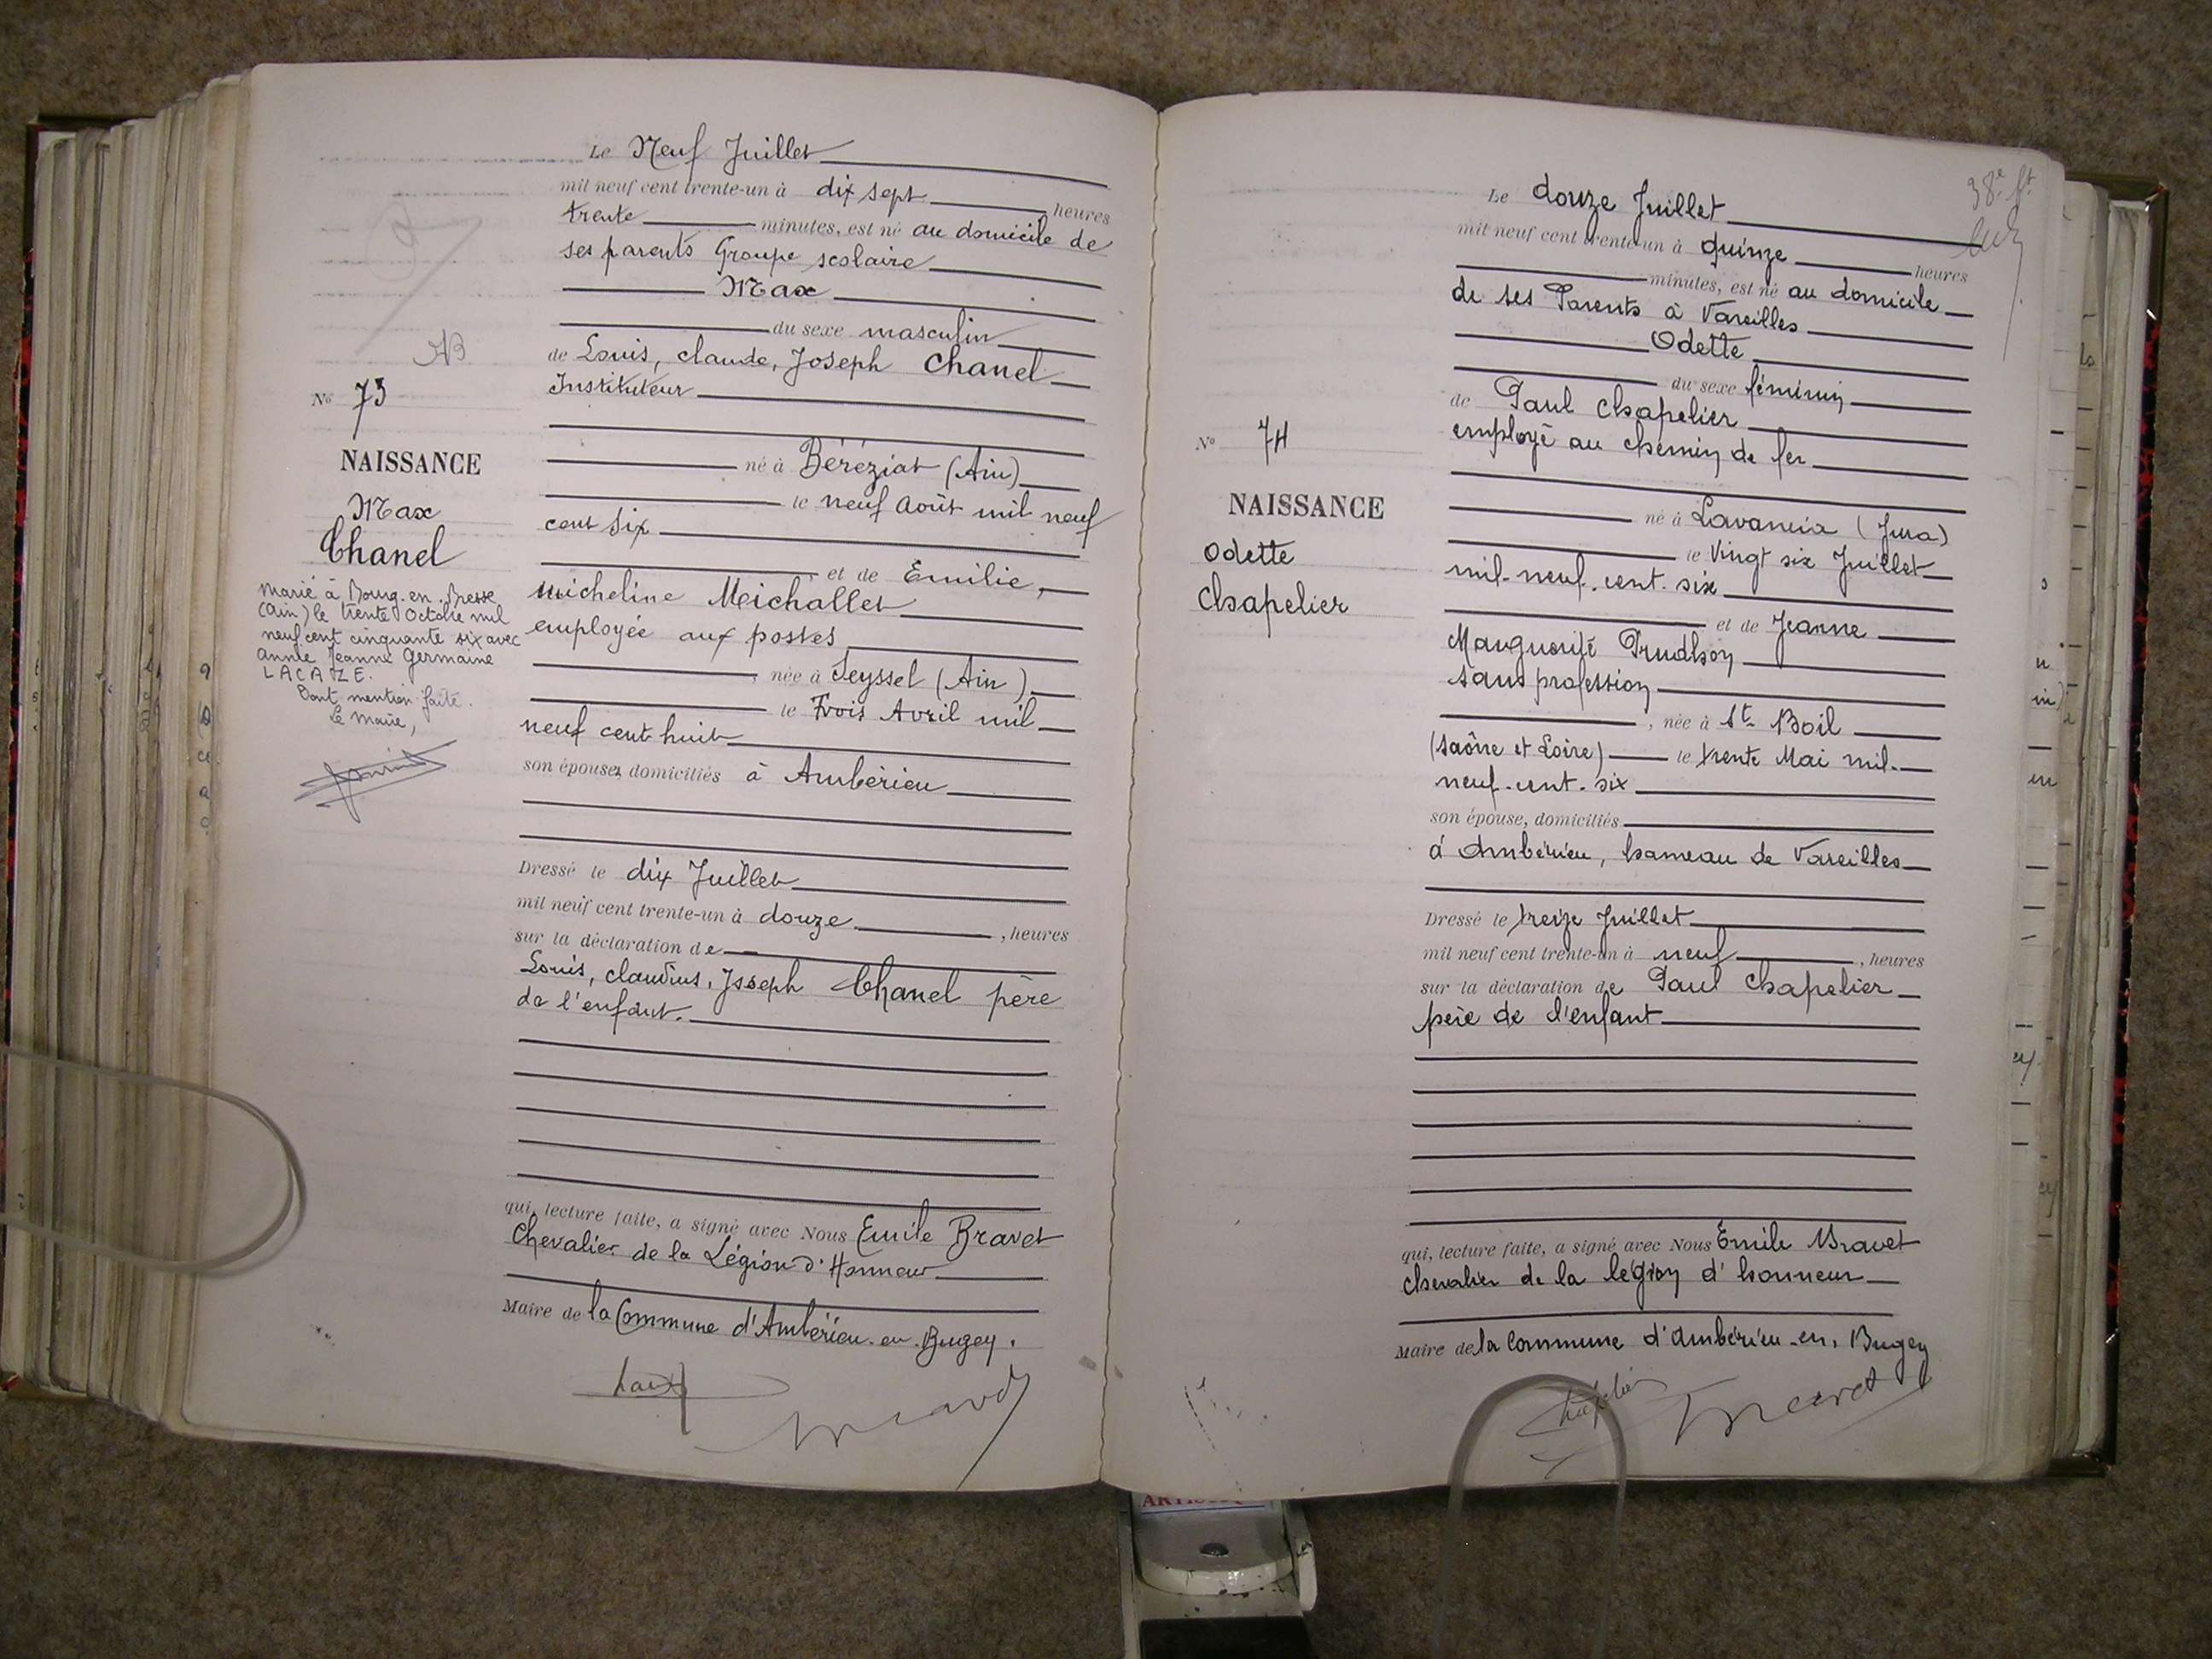 Le Neuf Juillet
mil neuf cent trente-un à dix sept heures
trente minutes, est né au domicile de
ses parents Groupe scolaire
Max
du sexe masculin
de Louis, claude, Joseph Chanel
Instituteur
né à Béréziat (Ain)
le neuf Août mil neuf
cent six
et de Emilie,
Micheline Meichallet
employée aux postes
, née à Seyssel (Ain)
le Trois Avril mil
neuf cent huit
son épouse, domiciliés à Ambérieu
Dressé le dix Juillet
mil neuf cent trente-un à douze , heures
sur la déclaration de
Louis, claudius, Joseph Chanel père
de l'enfant.
qui, lecture faite, a signé avec Nous Emile Bravet
Chevalier de la Légion d'Honneur
Maire de la Commune d'Ambérieu-en-Bugey.
No 73
NAISSANCE
Max
Chanel
Marié à Bourg-en-Bresse
(Ain) le trente Octobre mil
neuf cent cinquante six avec
Annie Jeanne Germaine
LACAZE.
Dont mention faite.
Le Maire,
Le douze Juillet
mil neuf cent trente-un à quinze heures
minutes, est né au domicile
de ses Parents à Vareilles
Odette
du sexe féminin
de Paul Chapelier
employé au chemin de fer
né à Lavancia (Jura)
le Vingt six Juillet
mil-neuf-cent-six
et de Jeanne
Marguerite Prudhon
sans profession
, née à St Boil
(Saône et Loire) le trente Mai mil-
neuf-cent-six
son épouse, domiciliés
à Ambérieu, hameau de Vareilles
Dressé le treize Juillet
mil neuf cent trente-un à neuf , heures
sur la déclaration de Paul Chapelier
père de l'enfant
qui, lecture faite, a signé avec Nous Emile Bravet
chevalier de la légion d'honneur
Maire de la Commune d'Ambérieu-en-Bugey
No 74
NAISSANCE
Odette
Chapelier